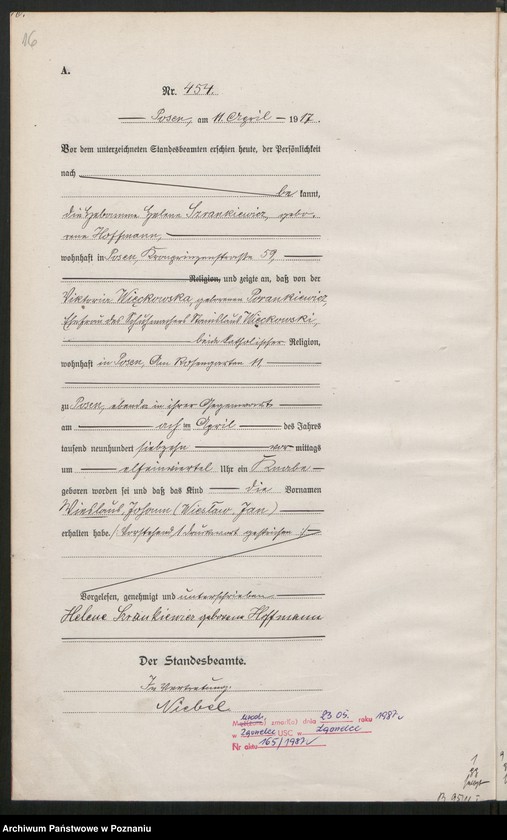 16
A.
Nr. 454.
Posen, am 11 April 19 17.
Vor dem unterzeichneten Standesbeamten erschien heute, der Persönlichkeit
nach
be kannt,
die Hebamme Helene Szrankiewicz, gebo-
rene Hoffmann,
wohnhaft in Posen, Kronprinzenstraße 59,
Religion, und zeigte an, daß von der
Viktoria Więckowska, geborenen Porankiewicz,
Ehefrau des Schuhmachers Stanislaus Więckowski,
beide katholischer Religion,
wohnhaft in Posen, Am Rosengarten 11,
zu Posen, ebenda in ihrer Gegenwart
am acht en April des Jahres
tausend neunhundert siebzehn vor mittags
um elfeinviertel Uhr ein Knabe
geboren worden sei und daß das Kind die Vornamen
Wieslaus, Johann (Wiesław, Jan)
erhalten habe. /: Vorstehend 1 Druckwort gestrichen :/
Vorgelesen, genehmigt und unterschrieben
Helene Szrankiewicz geborene Hoffmann
Der Standesbeamte.
In Vertretung.
Niebel
zmarł(a) dnia 23 05. roku 1987
w Zgorzelec USC w Zgorzelec
Nr aktu 165/1987
Archiwum Państwowe w Poznaniu